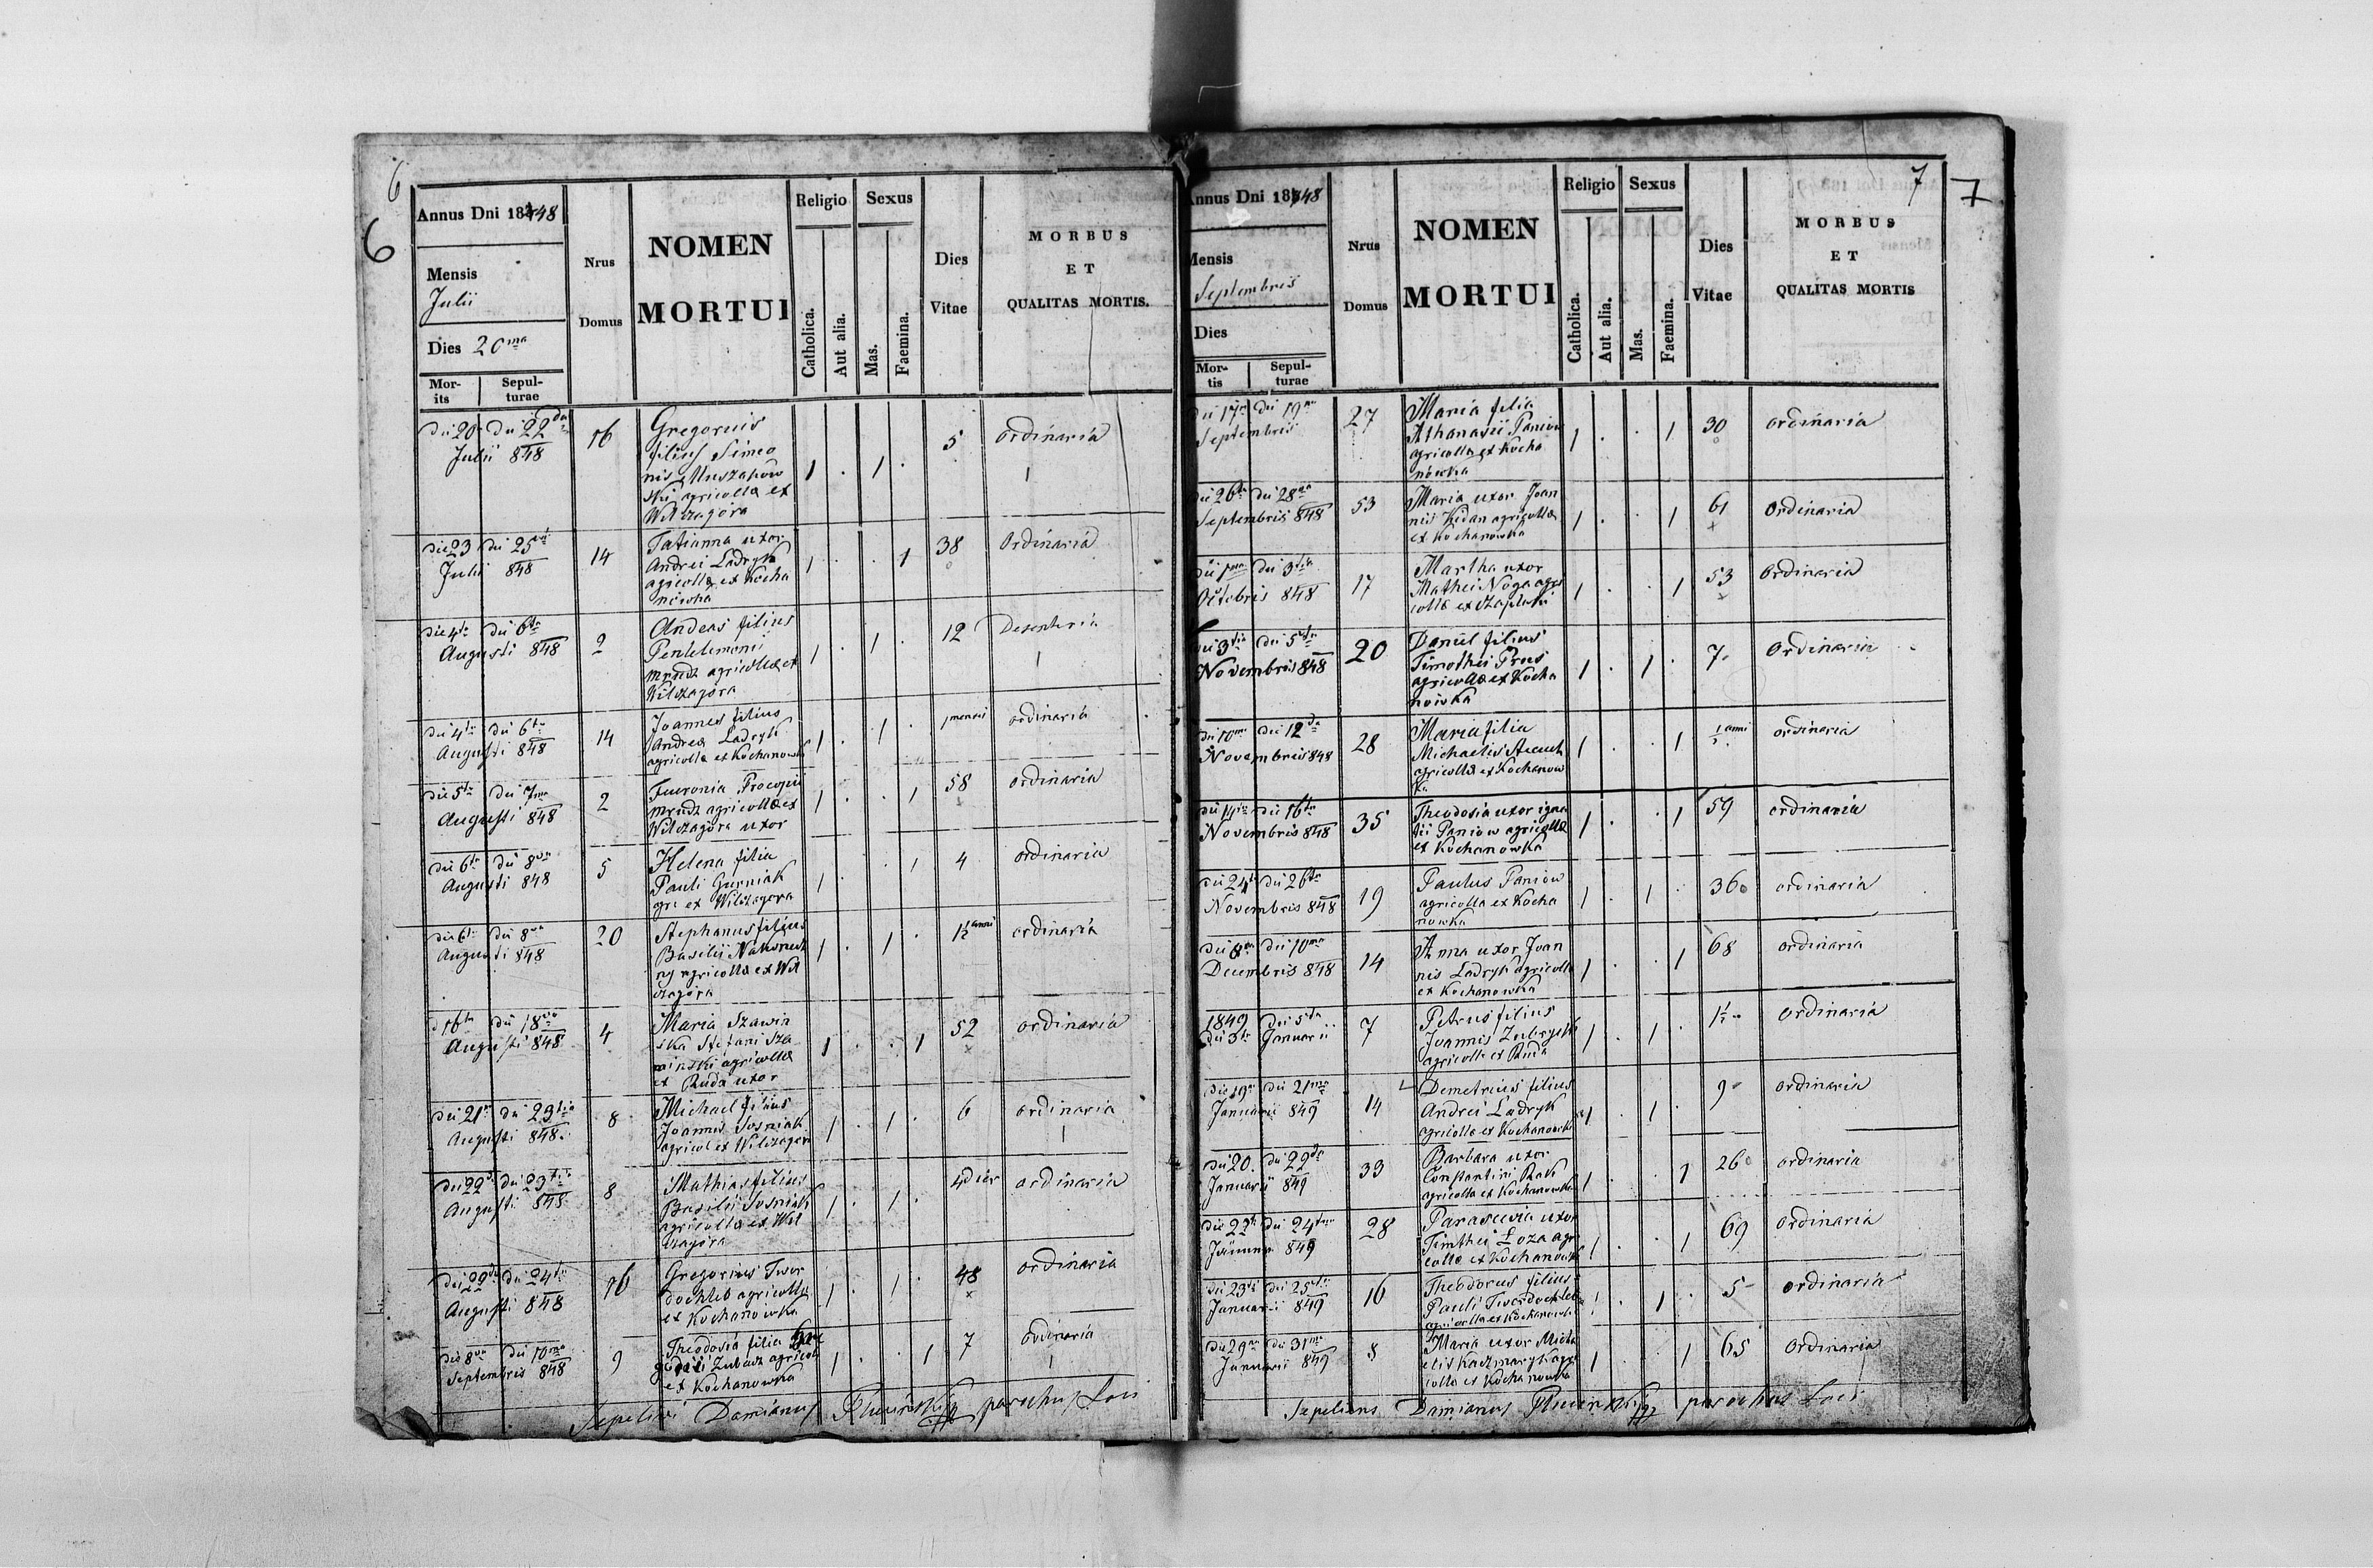 6
6
Annus Dni 1848
Mensis
Julii
Dies 20ma
Mortis
Sepulturae
Nrus
Domus
NOMEN
MORTUI
Religio
Catholica.
Aut alia.
Sexus
Mas.
Faemina.
Dies
Vitae
MORBUS
ET
QUALITAS MORTIS.
die 20 die 22da 16 Gregorius 5 ordinaria
Julii 848 filius Simeo
nis Muszakow
ski agricolla ex 1 . 1 . 1
Wilczagóra
die 23 die 25 14 Tatianna uxor 38 Ordinaria
Julii 848 Andrei Ladryk 1 . . 1
agricolla ex Kocha
nówka
die 4ta die 6ta 2 Andreas filius 12 Desenteria
Augusti 848 Pentelemonii 1 . 1 . 1
agricolla ex
Wilczagóra
die 4ta die 6ta 14 Joannes filius 1 mensis ordinaria
Augusti 848 Andrea Ladryk 1 . 1 .
agricolla ex Kochanowk
die 5ta die 7ma 2 Fewronia Procopii 58 ordinaria
Augusti 848 agricolla ex 1 . . 1
Wilczagóra uxor
die 6ta die 8va 5 Helena filia 4 ordinaria
Augusti 848 Pauli Gurniak 1 . . 1
agri ex Wilczagora
die 6ta die 8va 20 Stephanus filius 1½ anni ordinaria
Augusti 848 Basilii 1 . 1 .
agricolla ex Wil
czagóra
16ta die 18va 4 Maria Szawin 52 ordinaria
Augusti 848 ska Stefani Sza 1 . . 1
winski agricolla
ex Ruda uxor
die 21 die 23tia 8 Michael filius 6 ordinaria
Augusti 848 Joannis Sosniak 1 . 1 . 1
agricol ex Wilczagora
die 22 die 23tia 8 Mathias filius 4 dier ordinaria
Augusti 848 Basilii Sosniak 1 . 1 .
agricolla ex Wil
czagóra
die 22 die 24ta 16 Gregorius Twer 48 ordinaria
Augusti 848 dochleb agricolla 1 . 1 .
ex Kochanówka
die 8va die 10ma 9 Theodosia filia 7 ordinaria
Septembris 848 Zubacz agricoll 1 . . 1 1
ex Kochanowka
Sepelivi Damianus parochus Loci
7
7
Annus Dni 1848
Mensis
Septembris
Dies
Mortis
Sepulturae
Nrus
Domus
NOMEN
MORTUI
Religio
Catholica.
Aut alia.
Sexus
Mas.
Faemina.
Dies
Vitae
MORBUS
ET
QUALITAS MORTIS
die 17 die 19na 27 Maria filia 30 ordinaria
Septembris Athanasii Paniow 1 . . 1
agricolla ex Kocha
nówka
die 26ta die 28va 53 Maria uxor Joan 61 Ordinaria
Septembris 848 nis Kidan agricolla 1 . . 1
ex Kochanowka
die 1ma die 3tia 17 Martha uxor 53 Ordinaria
Octobris 848 Mathei Noga agri 1 . . 1
colla ex Czaplaki
die 3tia die 5ta 20 Daniel filius 7 Ordinaria
Novembris 848 Timothei Prus 1 . 1 .
agricolla ex Kocha
nówka
die 10ma die 12da 28 Maria filia anni ordinaria
Novembris 848 Michaelis 1 . . 1
agricolla ex Kochanow
ka
die 14ta die 16ta 35 Theodosia uxor igna 59 ordinaria
Novembris 848 tii Paniow agricolla 1 . . 1
ex Kochanowka
die 24ta die 26ta 19 Paulus Paniow 36 ordinaria
Novembris 848 agricolla ex Kocha 1 . 1 .
nowka
die 8va die 10ma 14 Anna uxor Joan 68 ordinaria
Decembris 848 nis Ladryk agricolla 1 . . 1
ex Kochanowka
1849 die 5ta 7 Petrus filius 1½ ordinaria
die 3tia Januarii Joannis 1 . 1 .
agricolla ex Ruda
die 19 die 21ma 14 Demetrius filius 9 ordinaria
Januarii 849 Andrei Ladryk 1 . 1 .
agricolla ex Kochanowk
die 20 die 22da 33 Barbara uxor 26 ordinaria
Januarii 849 Constantini Rak 1 . . 1
agricolla ex Kochanowka
die 22 die 24ta 28 Parascevia uxor 69 ordinaria
Januar 849 Timthei Loza agri 1 . . 1
colla ex Kochanowk
die 23tia die 25ta 16 Theodorus filius 5 ordinaria
Januarii 849 Pauli Twerdochleb 1 . 1 .
agricolla ex Kochanowk
die 29na die 31ma 8 Maria uxor Micha 65 Ordinaria
Januarii 849 elis Kaczmaryk agri 1 . . 1
colla ex Kochanowka
Sepeliens Damianus parochus Loci